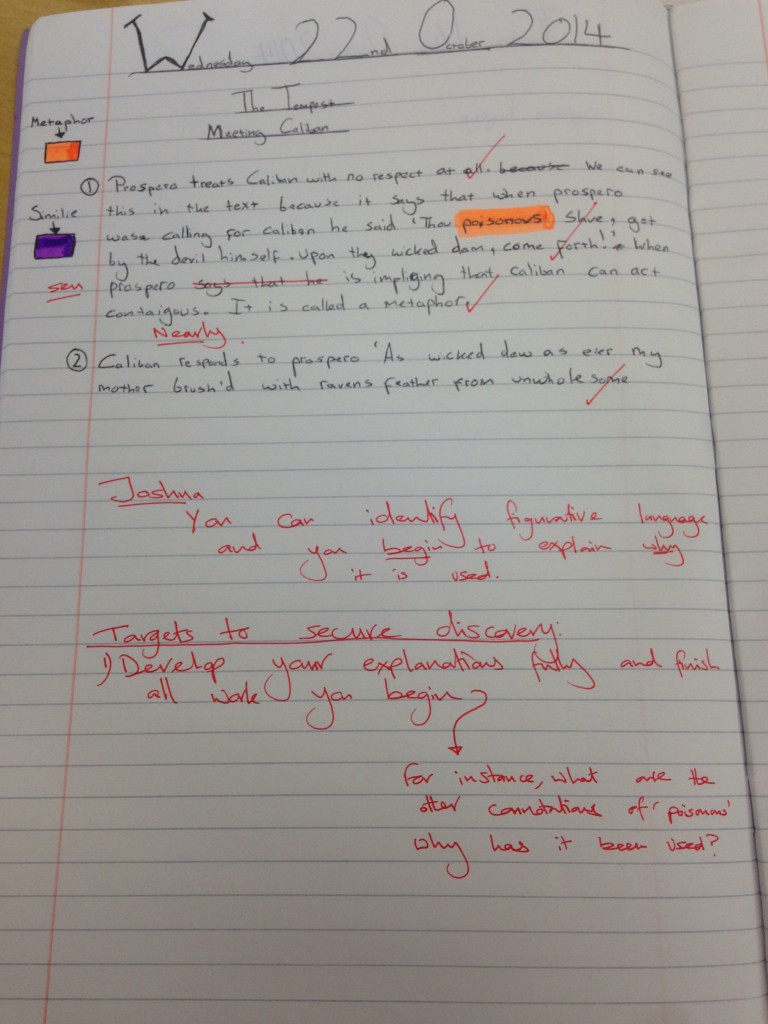 Wednesday 22nd October 2014
The Tempest
Meeting Caliban
Metaphor
Similie
① Prospero treats Caliban with no respect at all. because We can see
this in the text because it says that when prospero
was calling for caliban he said 'Thou poisonous Slave, got
by the devil himself. Upon they wicked dam, come forth!' When
sen
prospero says that he is impliging that caliban can act
contaigous. It is called a metaphor.
Nearly.
② Caliban responds to prospero 'As wicked dew as ever my
mother brush'd with ravens feather from unwhole some
Joshua
You can identify figurative language
and you begin to explain why
it is used.
Targets to secure discovery:
1) Develop your explanations fully and finish
all work you begin
For instance, what are the
other connotations of 'poisonous'
why has it been used?